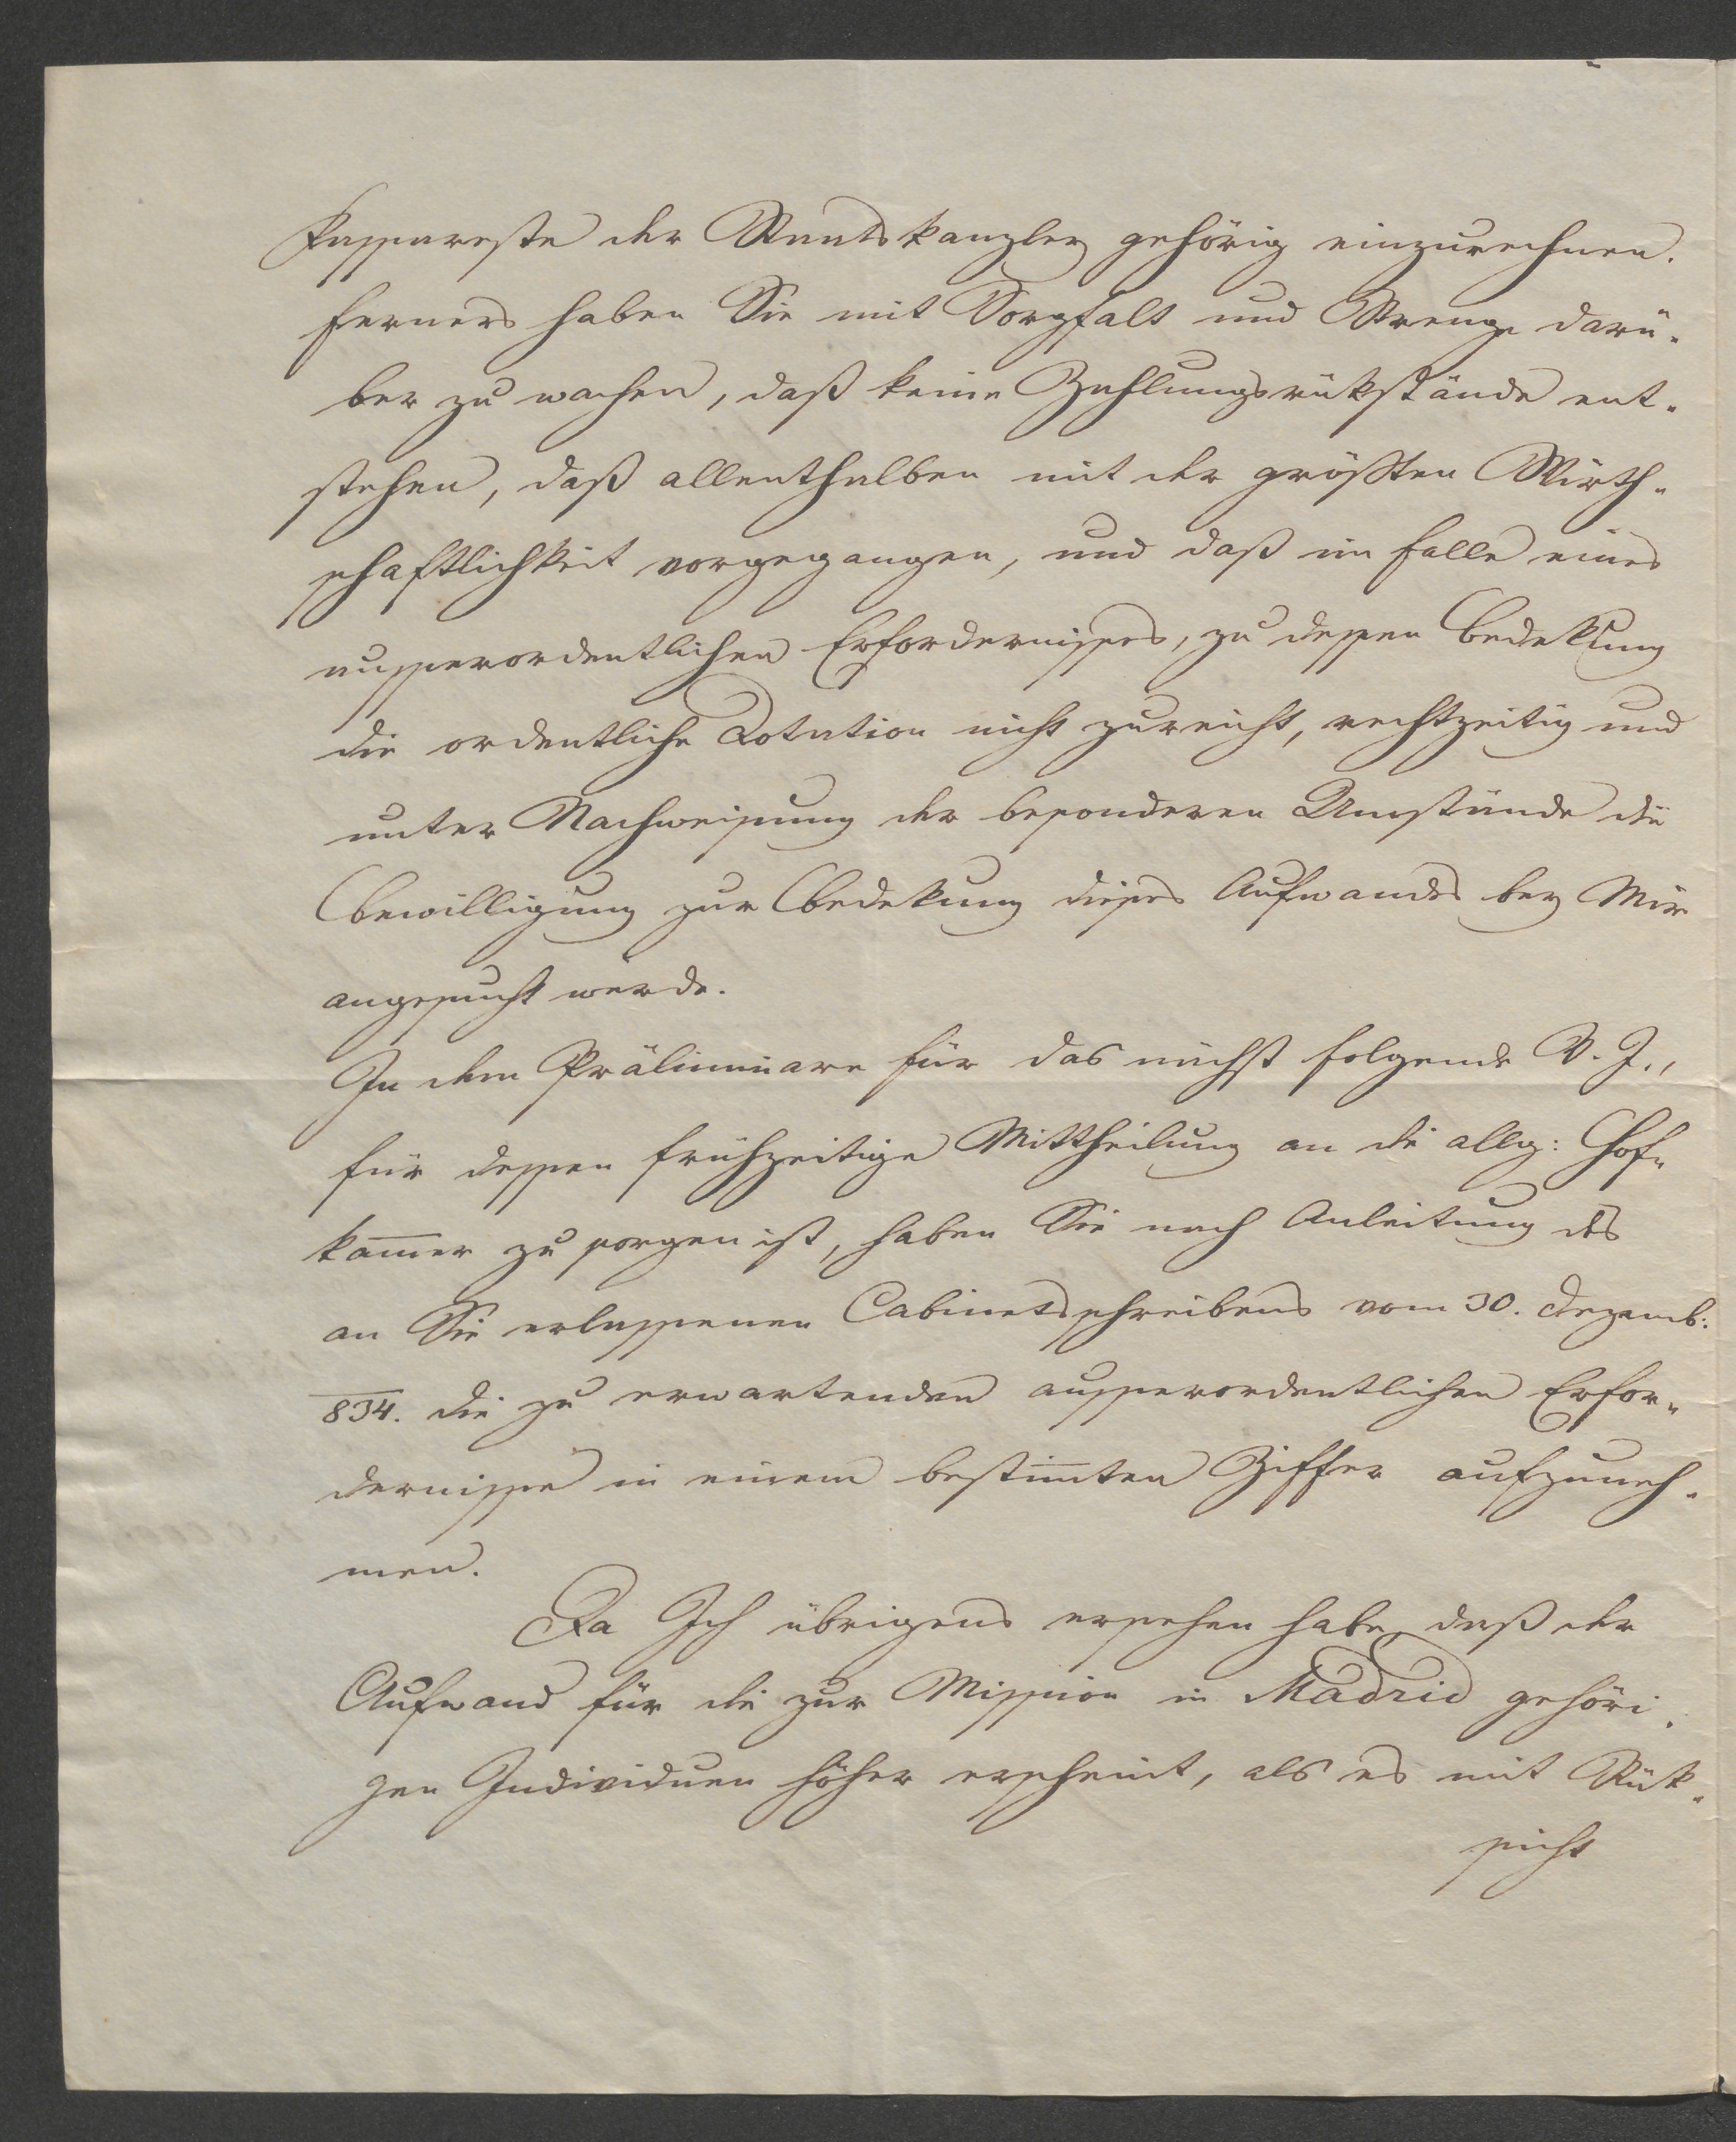 Kassareste der Staatskanzley gehörig einzurechnen.
Ferners haben Sie mit Sorgfalt und Strenge darü-
ber zu wachen, daß keine Zahlungsrükstände ent-
stehen, daß allenthalben mit der größten Wirth-
schaftlichkeit vorgegangen, und daß im Falle eines
ausserordentlichen Erfordernisses, zu dessen Bedekung
die ordentliche Dotation nicht zureicht, rechtzeitig und
unter Nachweisung der besonderen Umstände die
Bewilligung zur Bedekung dieses Aufwandes bey Mir
angesucht werde.
In dem Präliminare für das nächst folgende V. J.,
für dessen frühzeitige Mittheilung an die allg: Hof-
kam̅er zu sorgen ist, haben Sie nach Anleitung des
an Sie erlassenen Cabinetsschreibens vom 30. Dezemb:
834. die zu erwartenden ausserordentlichen Erfor-
dernisse in einem bestim̅ten Ziffer aufzuneh-
men.
Da Ich übrigens ersehen habe, daß der
Aufwand für die zur Mission in Madrid gehöri-
gen Individuen höher erscheint, als es mit Rük-
sicht